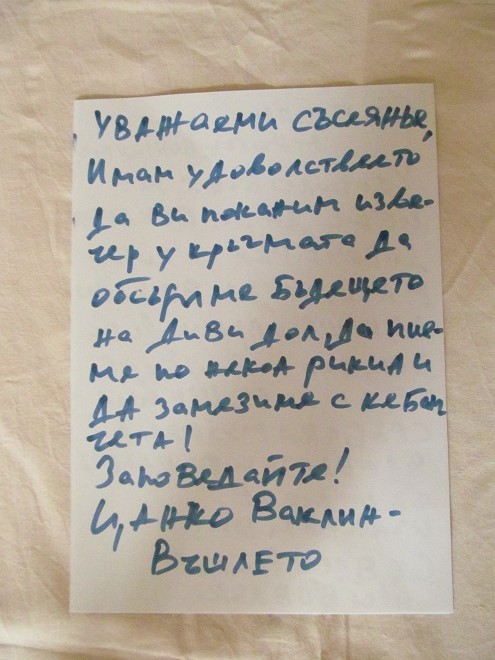 Уважаеми съселянье,
Имам удоволствието
да ви поканим изве-
чер у кръчмата да
обсъдиме бъдещето
на Диви дол, да пие-
ме по некоа рикиа и
да замезиме с кебап
чета!
Заповедайте!
Цанко Ваклин-
Въшлето